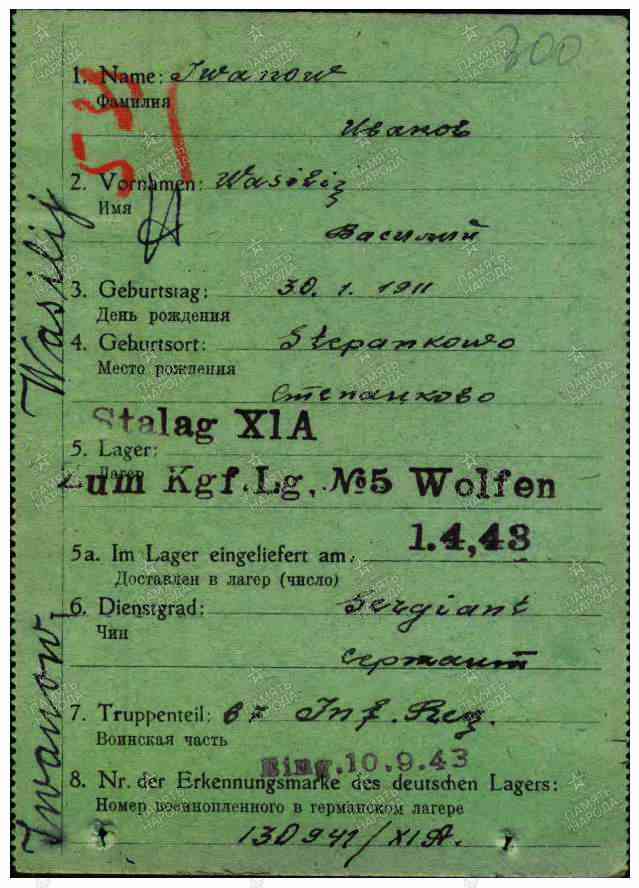 300
1. Name: Iwanow
Фамилия
Иванов
2. Vornamen: Wasilij
Имя
Василий
3. Geburtstag: 30. 1. 1911
День рождения
4. Geburtsort: Stepankowo
Место рождения
Степанково
Stalag XIA
5. Lager:
Лагер
Zum Kgf.Lg, №5 Wolfen
1.4,43
5a. Im Lager eingeliefert am:
Доставлен в лагер (число)
6. Dienstgrad: Sergiant
Чин
Сержант
7. Truppenteil: 67 Inf. Reg.
Воинская часть
Eing.10.9.43
8. Nr. der Erkennungsmarke des deutschen Lagers:
Номер военнопленного в германском лагере
130941/XIA.
Iwanow, Wasilij
ПАМЯТЬ НАРОДА